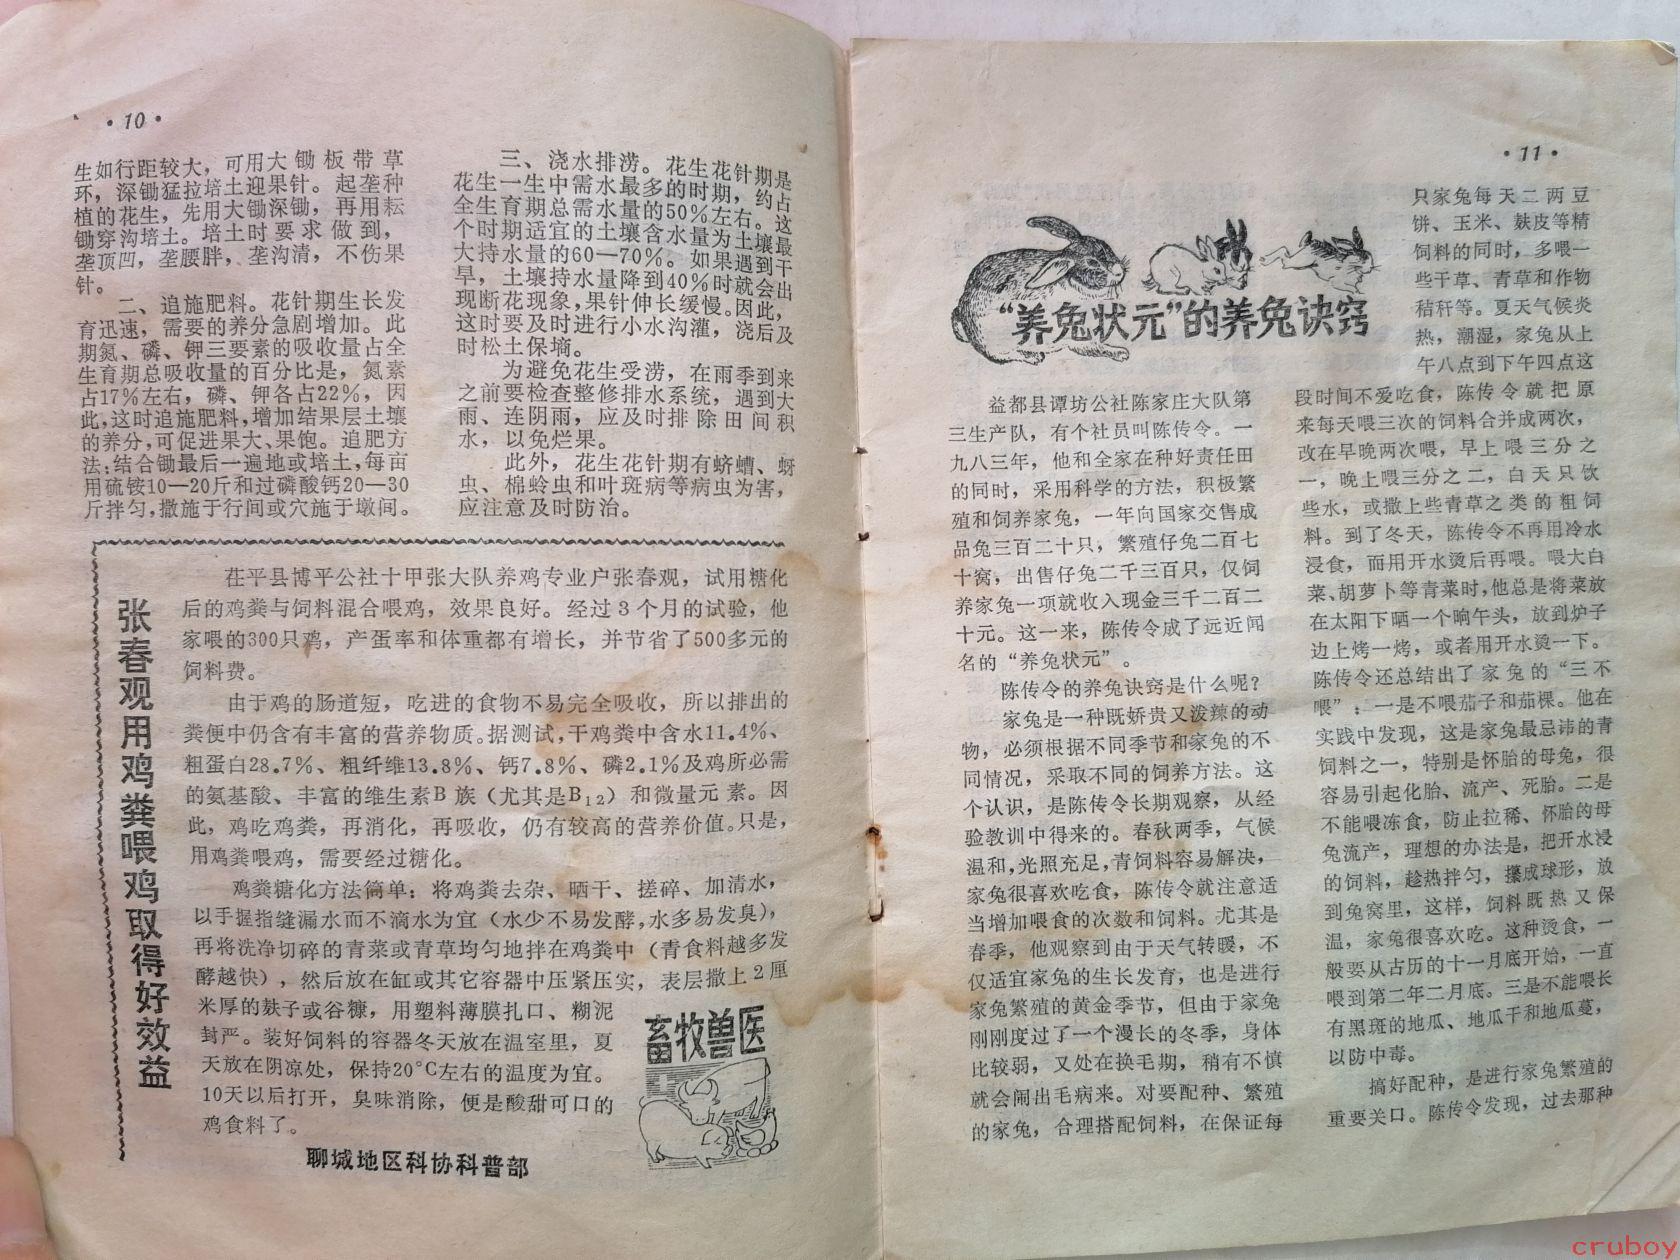 ·10·
生如行距较大，可用大锄板带草
环，深锄猛拉培土迎果针。起垄种
植的花生，先用大锄深锄，再用耘
锄穿沟培土。培土时要求做到，
垄顶凹，垄腰胖，垄沟清，不伤果
针。
二、追施肥料。花针期生长发
育迅速，需要的养分急剧增加。此
期氮、磷、钾三要素的吸收量占全
生育期总吸收量的百分比是，氮素
占17％左右，磷、钾各占22％，因
此，这时追施肥料，增加结果层土壤
的养分，可促进果大、果饱。追肥方
法：结合锄最后一遍地或培土，每亩
用硫铵10—20斤和过磷酸钙20—30
斤拌匀，撒施于行间或穴施于墩间。
三、浇水排涝。花生花针期是
花生一生中需水最多的时期，约占
全生育期总需水量的50％左右。这
个时期适宜的土壤含水量为土壤最
大持水量的60—70％。如果遇到干
旱，土壤持水量降到40％时就会出
现断花现象，果针伸长缓慢。因此，
这时要及时进行小水沟灌，浇后及
时松土保墒。
为避免花生受涝，在雨季到来
之前要检查整修排水系统，遇到大
雨、连阴雨，应及时排除田间积
水，以免烂果。
此外，花生花针期有蛴螬、蚜
虫、棉岭虫和叶斑病等病虫为害，
应注意及时防治。
张春观用鸡粪喂鸡取得好效益
茌平县博平公社十甲张大队养鸡专业户张春观，试用糖化
后的鸡粪与饲料混合喂鸡，效果良好。经过3个月的试验，他
家喂的300只鸡，产蛋率和体重都有增长，并节省了500多元的
饲料费。
由于鸡的肠道短，吃进的食物不易完全吸收，所以排出的
粪便中仍含有丰富的营养物质。据测试，干鸡粪中含水11.4％、
粗蛋白28.7％、粗纤维13.8％、钙7.8％、磷2.1％及鸡所必需
的氨基酸、丰富的维生素B族（尤其是B₁₂）和微量元素。因
此，鸡吃鸡粪，再消化，再吸收，仍有较高的营养价值。只是，
用鸡粪喂鸡，需要经过糖化。
鸡粪糖化方法简单：将鸡粪去杂、晒干、搓碎、加清水，
以手握指缝漏水而不滴水为宜（水少不易发酵，水多易发臭），
再将洗净切碎的青菜或青草均匀地拌在鸡粪中（青食料越多发
酵越快），然后放在缸或其它容器中压紧压实，表层撒上2厘
米厚的麸子或谷糠，用塑料薄膜扎口、糊泥
封严。装好饲料的容器冬天放在温室里，夏
天放在阴凉处，保持20°C左右的温度为宜。
10天以后打开，臭味消除，便是酸甜可口的
鸡食料了。
聊城地区科协科普部
畜牧兽医
·11·
“养兔状元”的养兔诀窍
益都县谭坊公社陈家庄大队第
三生产队，有个社员叫陈传令。一
九八三年，他和全家在种好责任田
的同时，采用科学的方法，积极繁
殖和饲养家兔，一年向国家交售成
品兔三百二十只，繁殖仔兔二百七
十窝，出售仔兔二千三百只，仅饲
养家兔一项就收入现金三千二百二
十元。这一来，陈传令成了远近闻
名的“养兔状元”。
陈传令的养兔诀窍是什么呢？
家兔是一种既娇贵又泼辣的动
物，必须根据不同季节和家兔的不
同情况，采取不同的饲养方法。这
个认识，是陈传令长期观察，从经
验教训中得来的。春秋两季，气候
温和，光照充足，青饲料容易解决，
家兔很喜欢吃食，陈传令就注意适
当增加喂食的次数和饲料。尤其是
春季，他观察到由于天气转暖，不
仅适宜家兔的生长发育，也是进行
家兔繁殖的黄金季节，但由于家兔
刚刚度过了一个漫长的冬季，身体
比较弱，又处在换毛期，稍有不慎
就会闹出毛病来。对要配种、繁殖
的家兔，合理搭配饲料，在保证每
只家兔每天二两豆
饼、玉米、麸皮等精
饲料的同时，多喂一
些干草、青草和作物
秸秆等。夏天气候炎
热，潮湿，家兔从上
午八点到下午四点这
段时间不爱吃食，陈传令就把原
来每天喂三次的饲料合并成两次，
改在早晚两次喂，早上喂三分之
一，晚上喂三分之二，白天只饮
些水，或撒上些青草之类的粗饲
料。到了冬天，陈传令不再用冷水
浸食，而用开水烫后再喂。喂大白
菜、胡萝卜等青菜时，他总是将菜放
在太阳下晒一个晌午头，放到炉子
边上烤一烤，或者用开水烫一下。
陈传令还总结出了家兔的“三不
喂”：一是不喂茄子和茄棵。他在
实践中发现，这是家兔最忌讳的青
饲料之一，特别是怀胎的母兔，很
容易引起化胎、流产、死胎。二是
不能喂冻食，防止拉稀、怀胎的母
兔流产，理想的办法是，把开水浸
的饲料，趁热拌匀，攥成球形，放
到兔窝里，这样，饲料既热又保
温，家兔很喜欢吃。这种烫食，一
般要从古历的十一月底开始，一直
喂到第二年二月底。三是不能喂长
有黑斑的地瓜、地瓜干和地瓜蔓，
以防中毒。
搞好配种，是进行家兔繁殖的
重要关口。陈传令发现，过去那种
cruboy